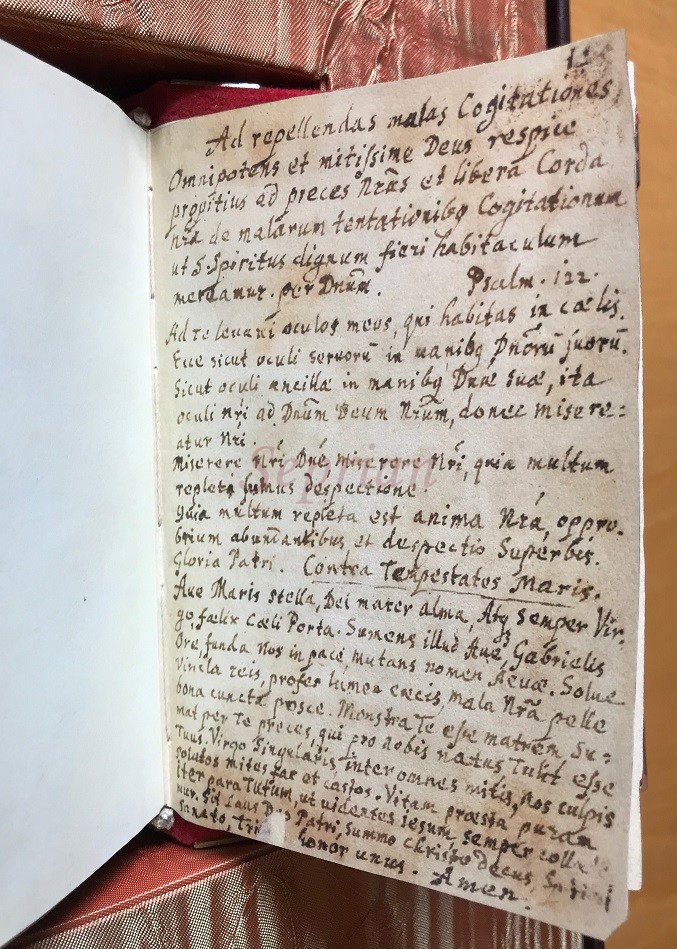 Ad repellendas malas Cogitationes
Omnipotens et mitissime Deus respice
propitius ad preces Nrãs et libera Corda
nrã de malarum tentationibꝫ Cogitationum
ut S. Spiritus dignum fieri habitaculum
mereamur. per Dnũm. Psalm. 122.
Ad te levavi oculos meos, qui habitas in cælis.
Ecce sicut oculi servorũ in manibꝫ Dnõrũ suorũ.
Sicut oculi ancillæ in manibꝫ Dnæ suæ, ita
oculi nři ad Dnũm Deum Nrũm, donec misere=
atur Nři.
Miserere Nři Dnẽ, miserere Nři, quia multum
repleti sumus despectione.
Quia multum repleta est anima Nrã, oppro-
brium abundantibus et despectio Superbis.
Gloria Patri. Contra Tempestates Maris.
Ave Maris stella, Dei mater alma, Atqꝫ semper Vir-
go, fælix Cæli Porta. Sumens illud Ave, Gabrielis
Ore, funda Nos in pace, mutans nomen Aevæ. Solve
Vincla reis, profer lumen cæcis, mala Nrã pelle
bona cuncta posce. Monstra Te esse matrem Su-
mat per Te preces, qui pro nobis natus, Tulit esse
Tuus. Virgo Singularis, inter omnes mitis, Nos culpis
solutos mites fac et castos. Vitam præsta puram
iter para Tutum, ut videntes Iesum, semper colla
mur. Sit Laus Deo Patri, summo Christo decus, Spiritui
Sancto, honor unus. Amen.
Seprian